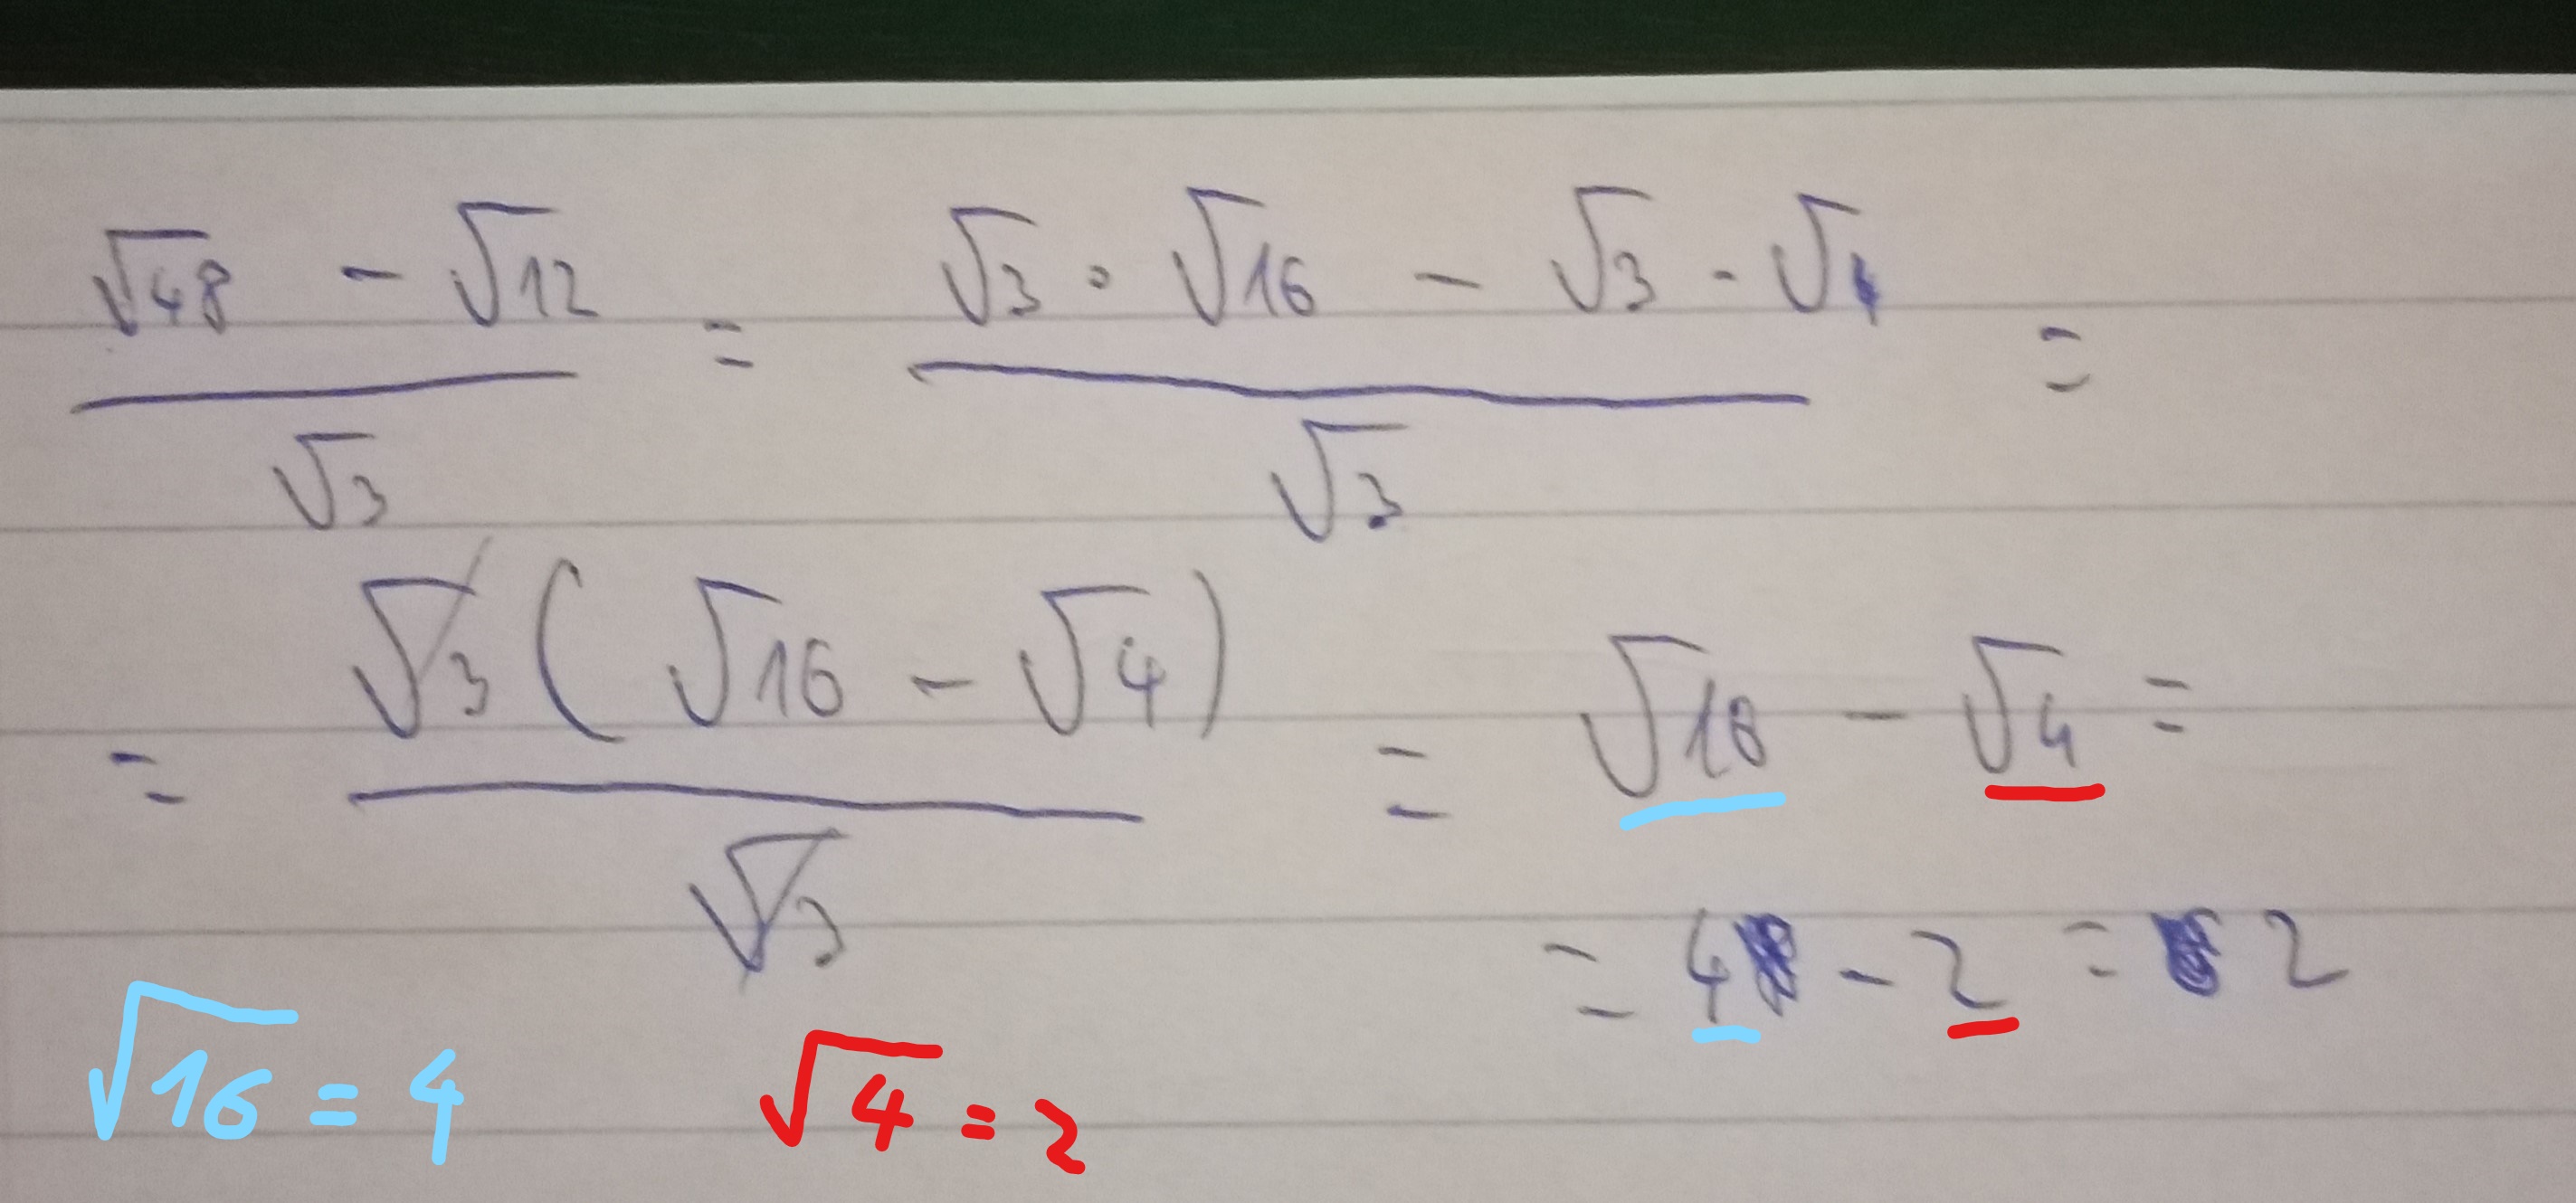 √48 - √12 / √3 = √3 · √16 - √3 · √4 / √3 =
= √3 (√16 - √4) / √3 = √16 - √4 =
= 4 - 2 = 2
√16 = 4 √4 = 2